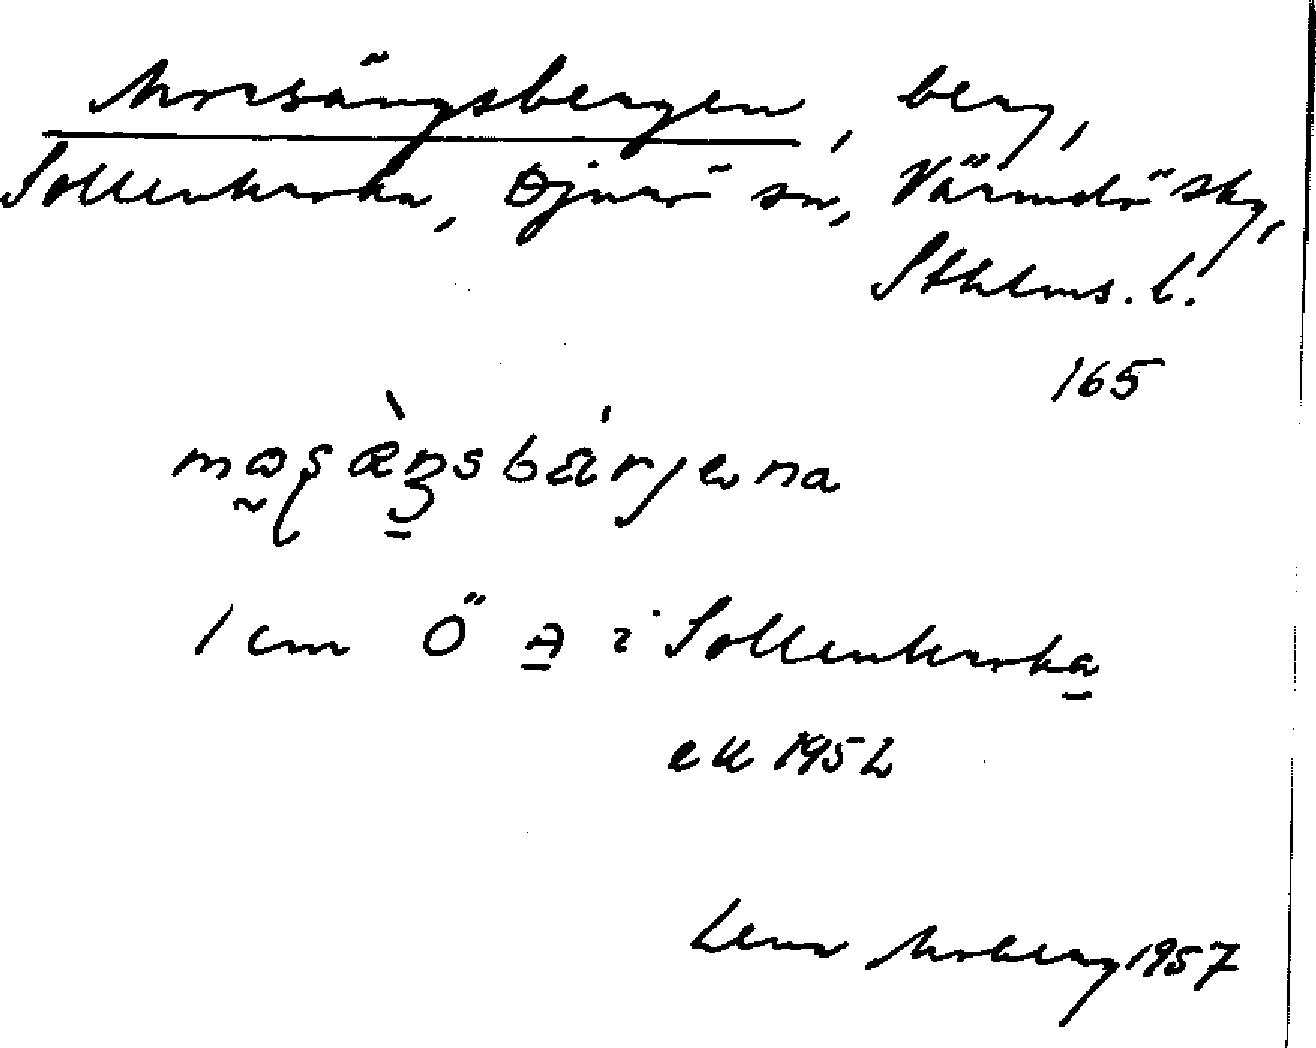 Morsängsbergen, berg,
Sollenkroka, Djurö sn, Värmdö skg,
Sthlms. l.
165
1 cm Ö A i Sollenkroka
ek 1952
Lena Moberg 1957